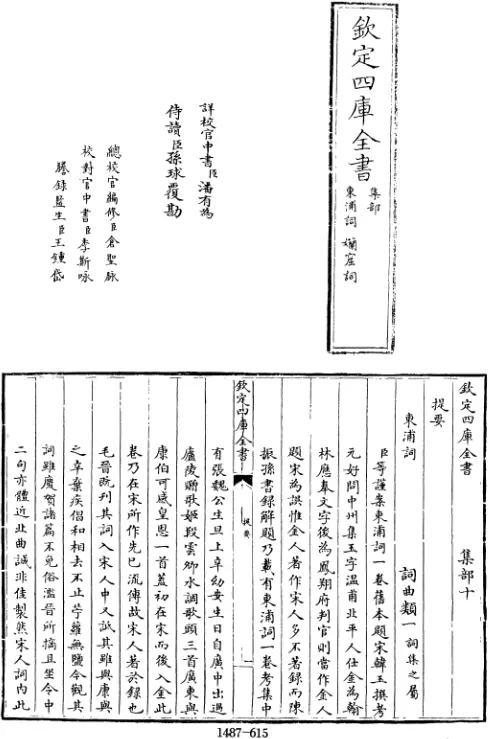 欽定四庫全書
集部
東浦詞 嬾窟詞
詳校官中書臣潘有為
侍讀臣孫球覆勘
總校官編修臣倉聖脉
校對官中書臣李斯咏
謄錄監生臣王鍾岱
欽定四庫全書 集部十
提要
東浦詞 詞曲類一 詞集之屬
臣等謹案東浦詞一卷舊本題宋韓玉撰考
元好問中州集玉字溫甫北平人仕金為翰
林應奉文字後為鳳翔府判官則當作金人
題宋為誤惟金人著作宋人多不著録而陳
振孫書録解題乃載有東浦詞一卷考集中
欽定四庫全書
提要
一
有張魏公生旦上辛幼安生日自廣中出過
廬陵贈歌姬段雲卿水調歌頭三首廣東與
康伯可感皇恩一首蓋初在宋而後入金此
卷乃在宋所作先已流傳故宋人著於録也
毛晉既列其詞入宋人中又詆其雖與康與
之辛棄疾倡和相去不止苧蘿無鹽今觀其
詞雖慶賀諸篇不免俗濫晉所摘且坐令中
二句亦體近北曲誠非佳製然宋人詞内此
1487-615